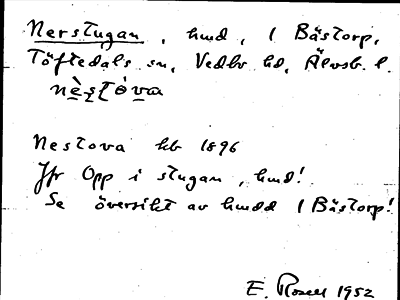 Nerstugan, hmd, i Bästorp,
Töftedals sn, Vedbo hd, Älvsb. l.
nèstòva
Nestova hb 1896
Jfr Opp i stugan, hmd!
Se översikt av hmdd i Bästorp!
E. Rosell 1952